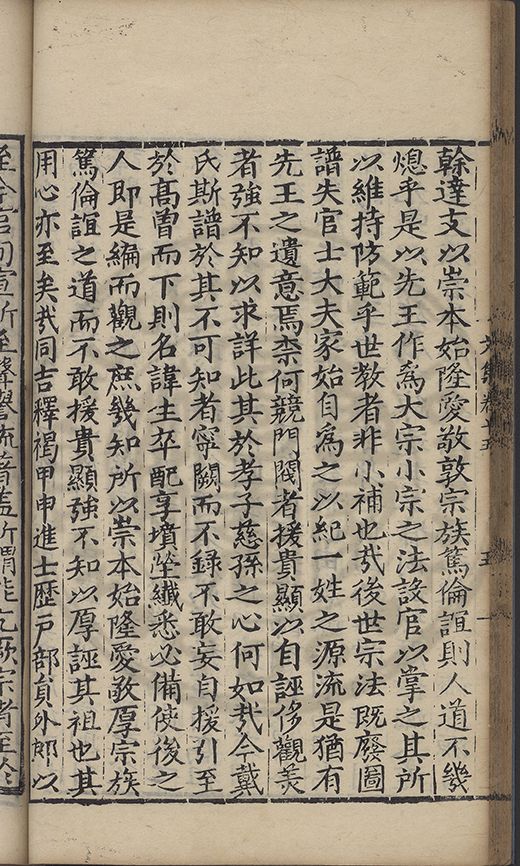 榦達支以崇本始隆愛敬敦宗族篤倫誼則人道不幾
熄乎是以先王作爲大宗小宗之法設官以掌之其所
以維持防範乎世教者非小補也㢤後世宗法既廢圖
譜失官士大夫家始自爲之以紀一姓之源流是猶有
先王之遺意焉柰何競門閥者援貴顯以自誣侈觀羙
者強不知以求詳此其於孝子慈孫之心何如㢤今戴
氏斯譜於其不可知者寧闕而不録不敢妄自援引至
於髙曾而下則名諱生卒配享墳塋纎悉必備使後之
人即是編而觀之庶幾知所以崇本始隆愛敬厚宗族
篤倫誼之道而不敢援貴顯強不知以厚誣其祖也其
用心亦至矣㢤同吉釋褐甲申進士歴戸部貟外郎以